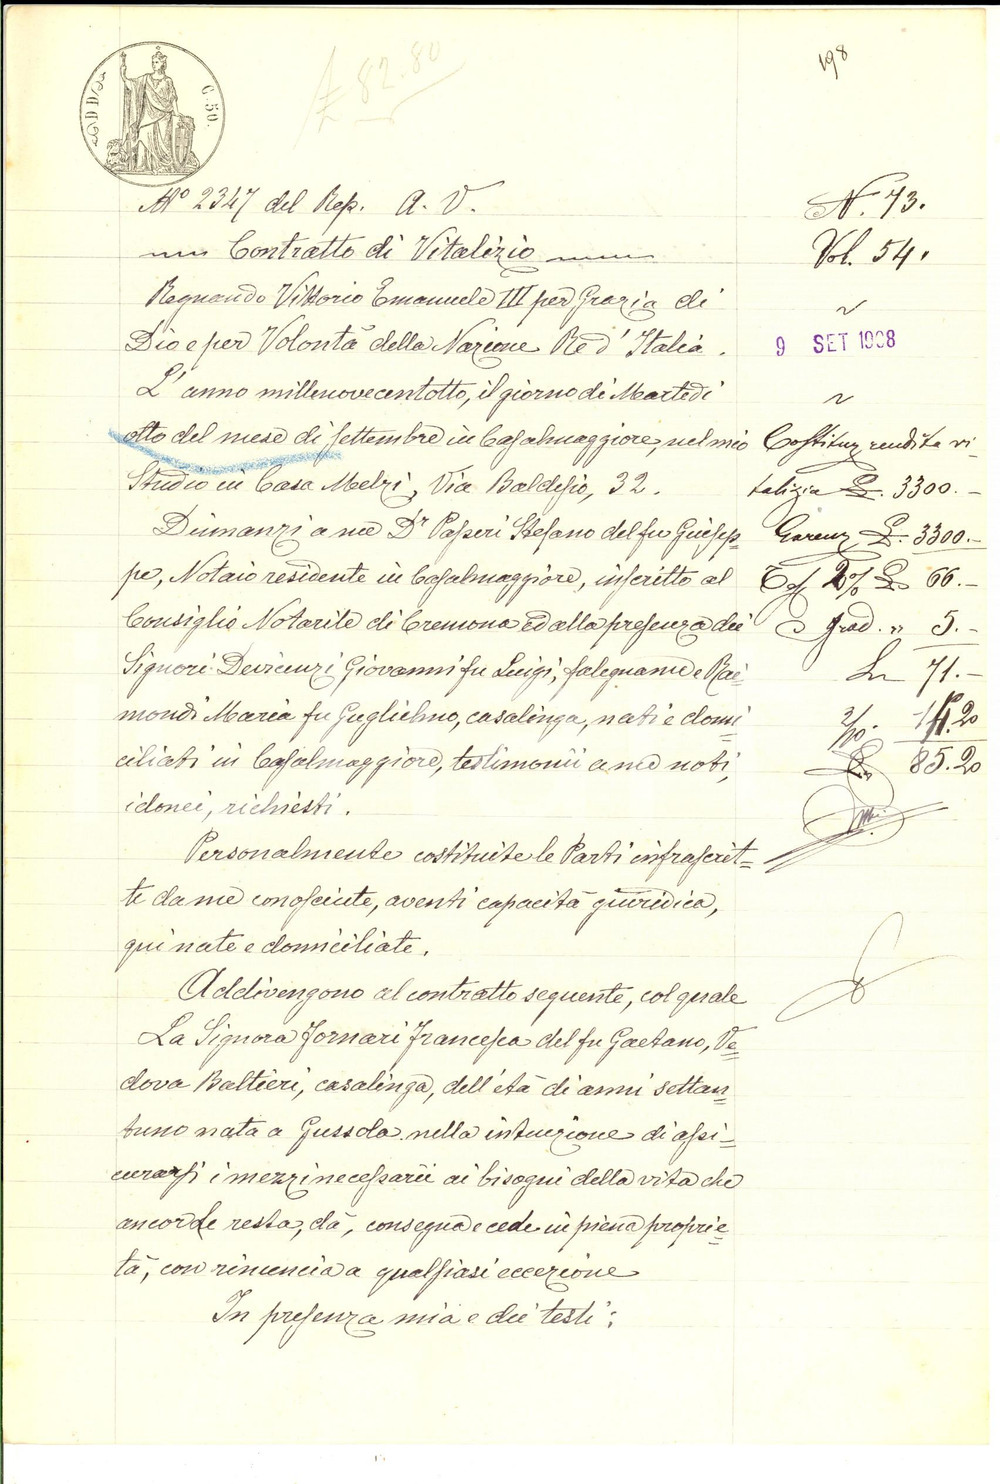 198
£ 82.80
C. 50.
N° 2347 del Rep. A. V.
Contratto di Vitalizio
Regnando Vittorio Emanuele III per Grazia di
Dio e per Volontà della Nazione Re d' Italia.
L' anno millenovecentotto, il giorno di Martedì
otto del mese di settembre in Casalmaggiore, nel mio
Studio in Casa Melzi, Via Baldesio, 32.
Dinnanzi a me Dr Passeri Stefano del fu Giusep=
pe, Notaio residente in Casalmaggiore, inscritto al
Consiglio Notarile di Cremona ed alla presenza dei
Signori Devicenzi Giovanni fu Luigi, falegname e Rai=
mondi Maria fu Guglielmo, casalinga, nati e domi=
ciliati in Casalmaggiore, testimonii a me noti,
idonei, richiesti.
Personalmente costituite le Parti infrascrit=
te da me conosciute, aventi capacità giuridica,
qui nate e domiciliate.
Addivengono al contratto seguente, col quale
La Signora Fornari Francesca del fu Gaetano, Ve=
dova Baltieri, casalinga, dell'età di anni settan=
tuno nata a Gussola nella intenzione di assi=
curarsi i mezzi necessarii ai bisogni della vita che
ancor le resta, dà, consegna e cede in piena proprie=
tà, con rinuncia a qualsiasi eccezione
In presenza mia e dei testi:
N. 73.
Vol. 54.
9 SET 1908
Costituz rendita vi=
talizia £. 3300.-
Garenz £. 3300.-
2% £ 66.-
grad. " 5.-
L 71.-
2/10. 14.20
£ 85.20